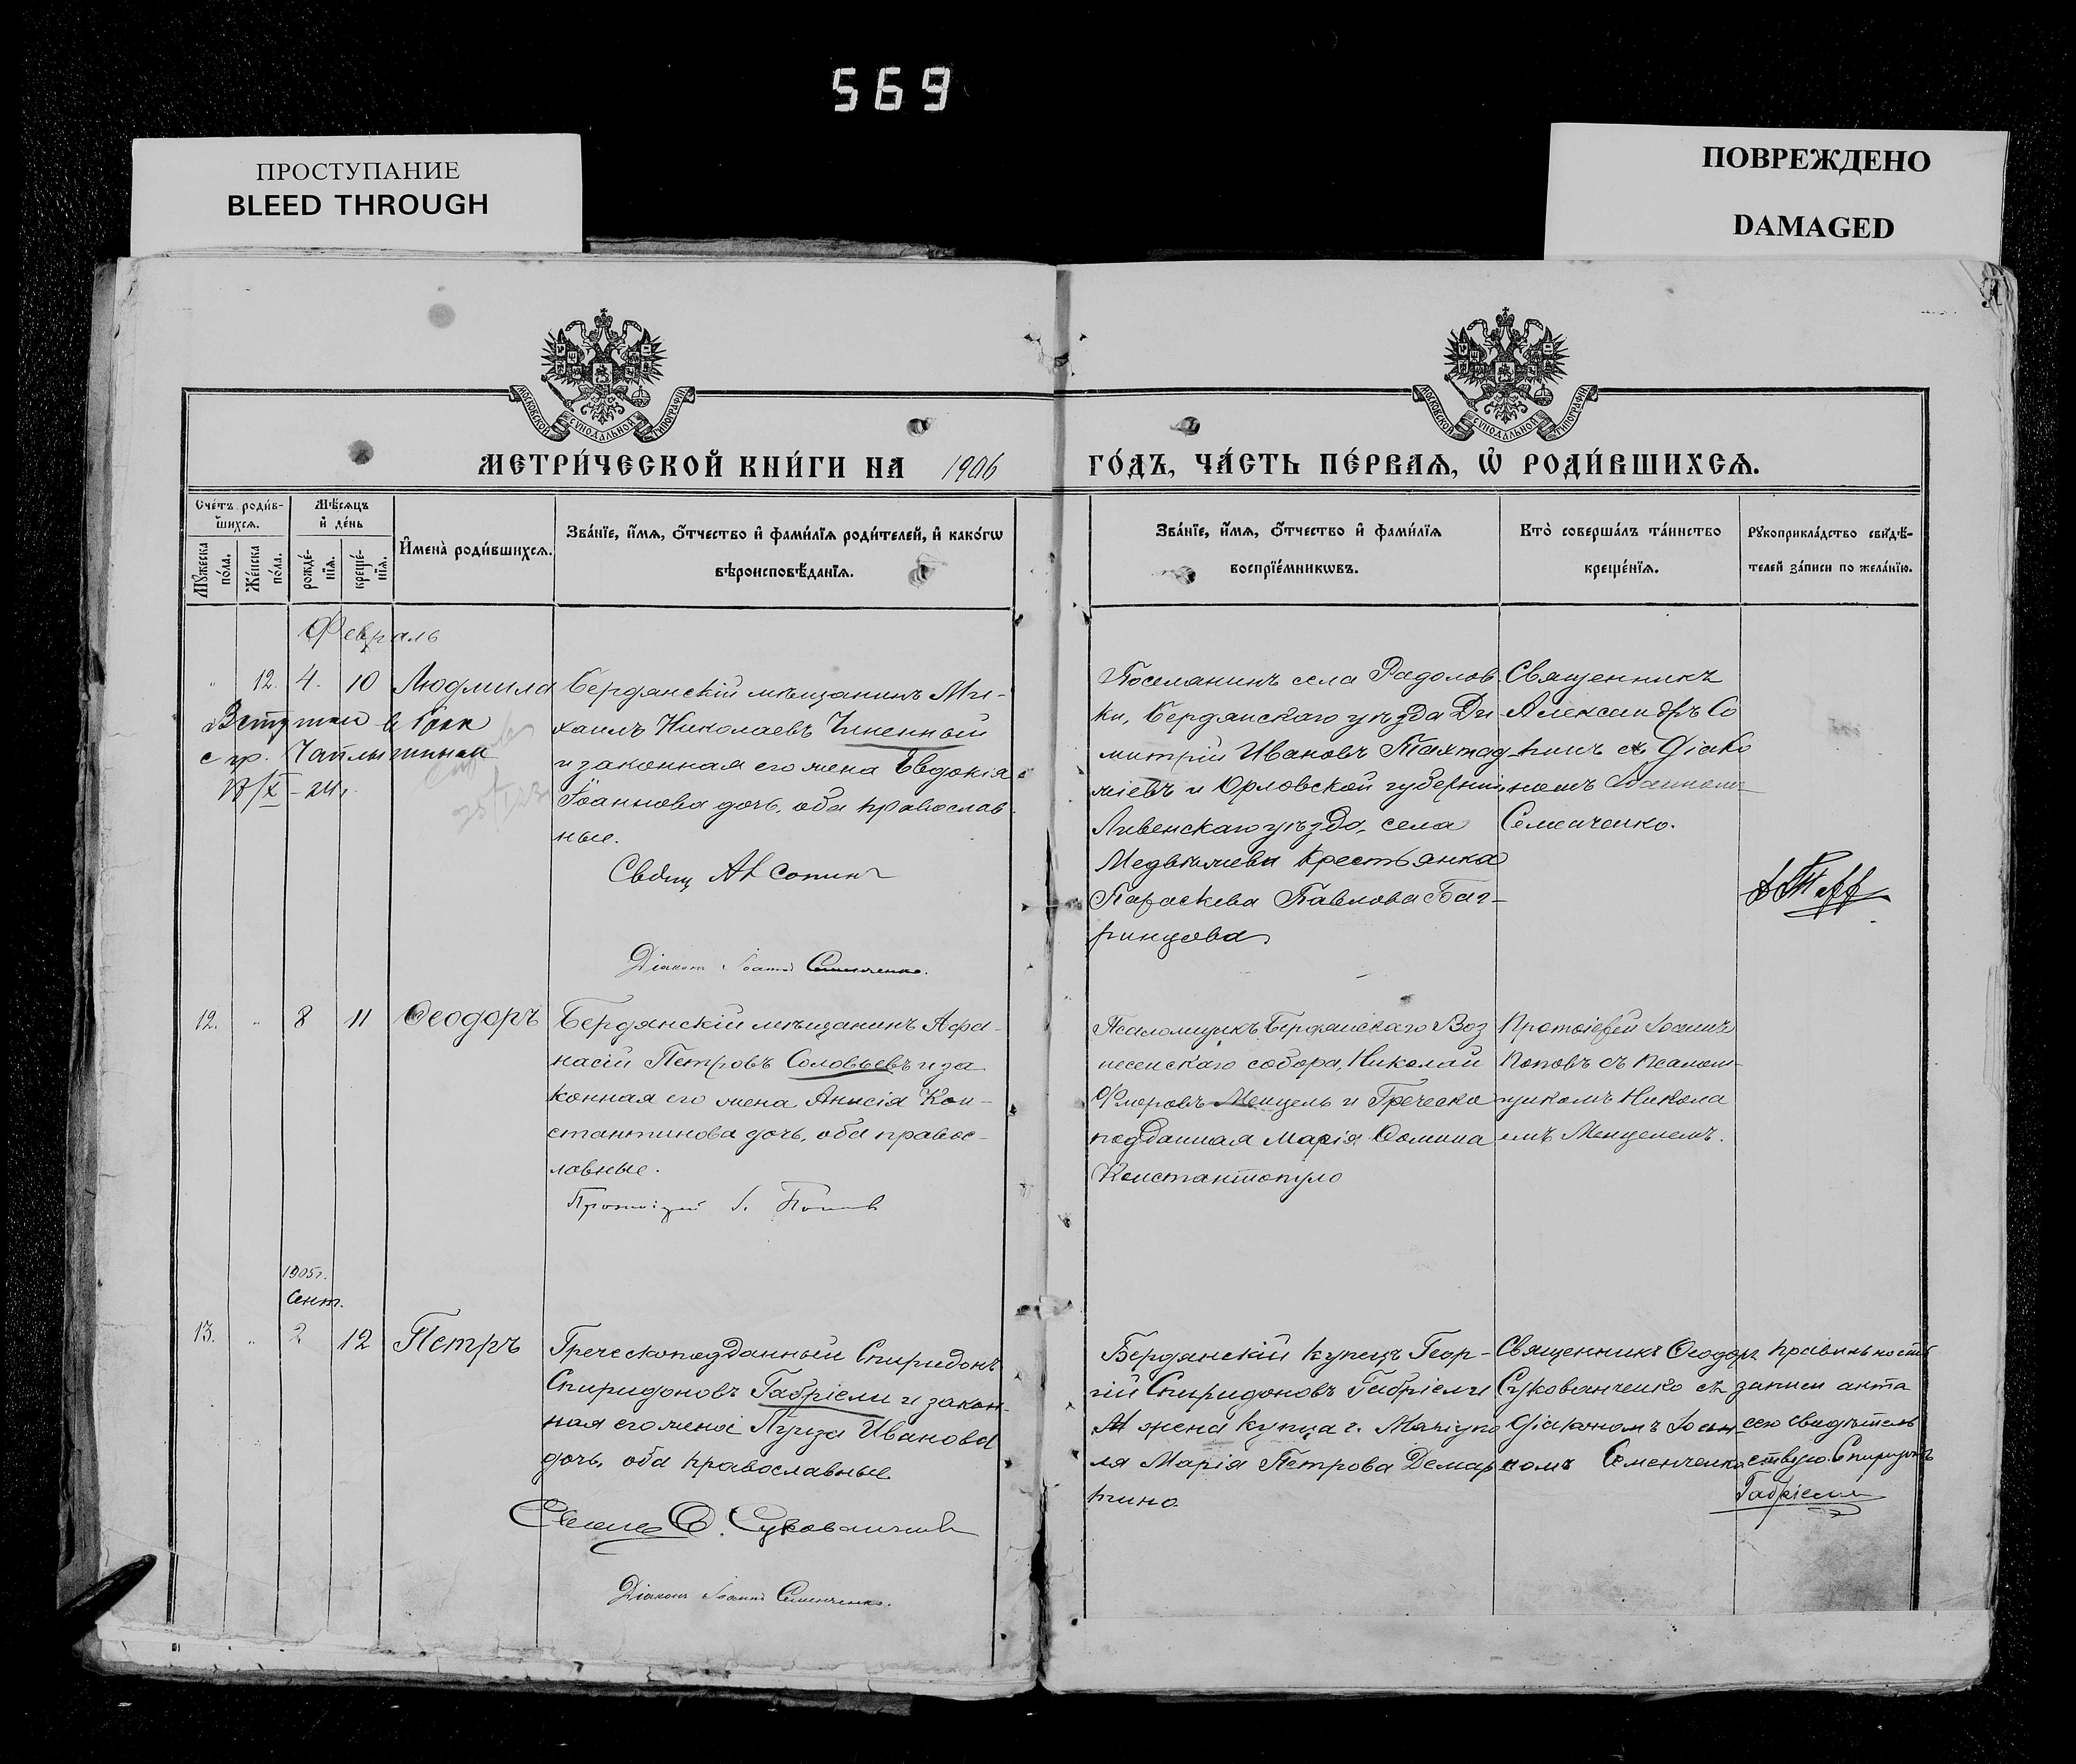 569
ПРОСТУПАНИЕ
BLEED THROUGH
ПОВРЕЖДЕНО
DAMAGED
МОСКОВСКОЙ СѴНОДАЛЬНОЙ ТИПОГРАФІИ
МОСКОВСКОЙ СѴНОДАЛЬНОЙ ТИПОГРАФІИ
МЕТРИ́ЧЕСКОЙ КНИ́ГИ НА 1906
ГО́ДЪ, ЧА́СТЬ ПЕ́РВАѦ, Ѽ РОДИ́ВШИХСѦ.
Сче́тъ роди́в-
шихсѧ.
Мꙋжеска по́ла.
Же́нска по́ла.
Мѣ́сѧцъ
и҆ де́нь
рожде́-
нїѧ.
креще́-
нїѧ.
И҆мена̀ роди́вшихсѧ.
Зва́нїе, и҆́мѧ, ѻ҆́тчество и҆ фами́лїѧ роди́телей, и҆ како́гѡ
вѣроисповѣ́данїѧ.
Зва́нїе, и҆́мѧ, ѻ҆́тчество и҆ фами́лїѧ
воспрїе́мникѡвъ.
Кто̀ соверша́лъ та́инство
креще́нїѧ.
Рꙋкоприкла́дство свидѣ́-
телей за́писи по жела́нїю.
Февраль
" 12. 4. 10 Людмила
Бердянскій мѣщанинъ Ми-
хаилъ Николаевъ Чиненный
и законная его жена Евдокія
Іоаннова дочь, оба православ
ные.
Свящ Ал Сопин
Діаконъ Іоаннъ Семенченко.
Вступил в брак
с гр.
Поселянинъ села Радолов
ки, Бердянскаго уѣзда Ди
митрій Ивановъ Тахтад
жіевъ и Орловской губерніи,
Ливенскаго уѣзда, села
крестьянка
Параскева Павлова Баг-
ринцова
Священникъ
Александръ Со
пинъ съ діако
номъ Іоанномъ
Семенченко.
12. " 8 11 Ѳеодоръ
Бердянскій мѣщанинъ Афа-
насій Петровъ Соловьевъ и за
конная его жена Анисія Кон-
стантинова дочь, оба правос-
лавные.
Протоіерей І. Попов
Псаломщикъ Бердянскаго Воз
несенскаго собора, Николай
Флоровъ Менцель и Греческо
подданная Марія Ѳомина
Константопуло
Протоіерей Іоаннъ
Поповъ съ псалом-
щикомъ Никола
емъ Менцелемъ.
1905 г.
Сент.
13. " 2 12 Петръ
Греческоподданный Спиридонъ
Спиридоновъ Габріели и закон-
ная его жена Луиза Иванова
дочь, оба православные
Священ Ѳ. Сукованченко
Діаконъ Іоаннъ Семенченко.
Бердянскій купецъ Геор-
гій Спиридоновъ Габріели
и жена купца г. Маріупо
ля Марія Петрова Демар
тино.
Священникъ Ѳеодоръ
Сукованченко съ
діакономъ Іоан-
номъ Семенченко
правильность
записи акта
сего свидѣтель
ствую. Спиридонъ
Габріели